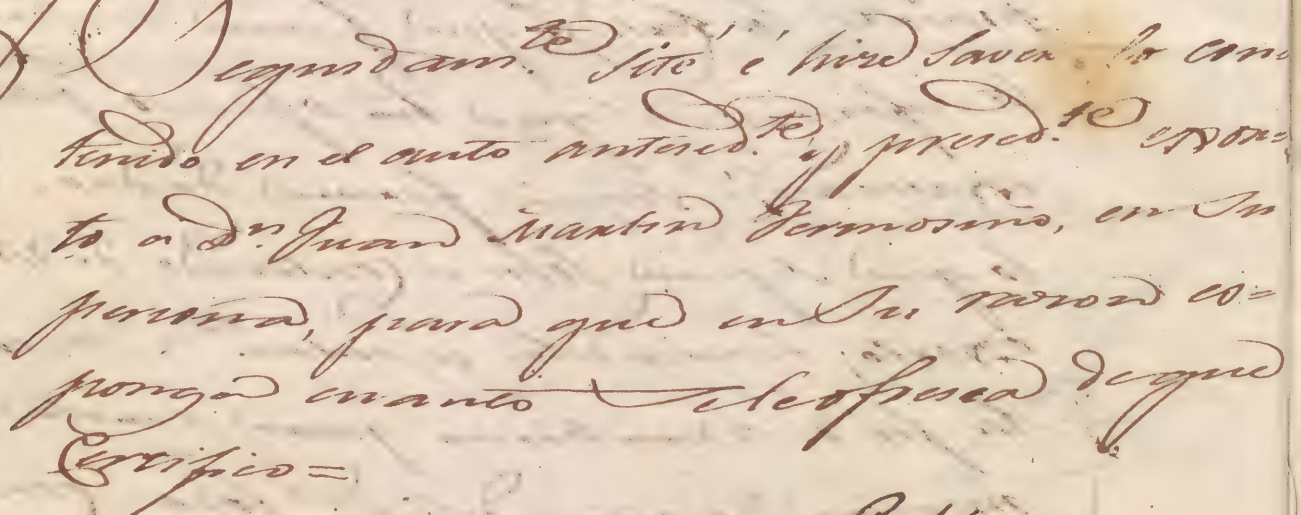 Seguidam.te sité é hise saver lo con-
tenido en el auto antesed.te y presed.te exor-
to a Dn Juan Martin Fermosino, en su
persona, para que en su razon es=
ponga cuanto se le ofresca de que
Certifico=